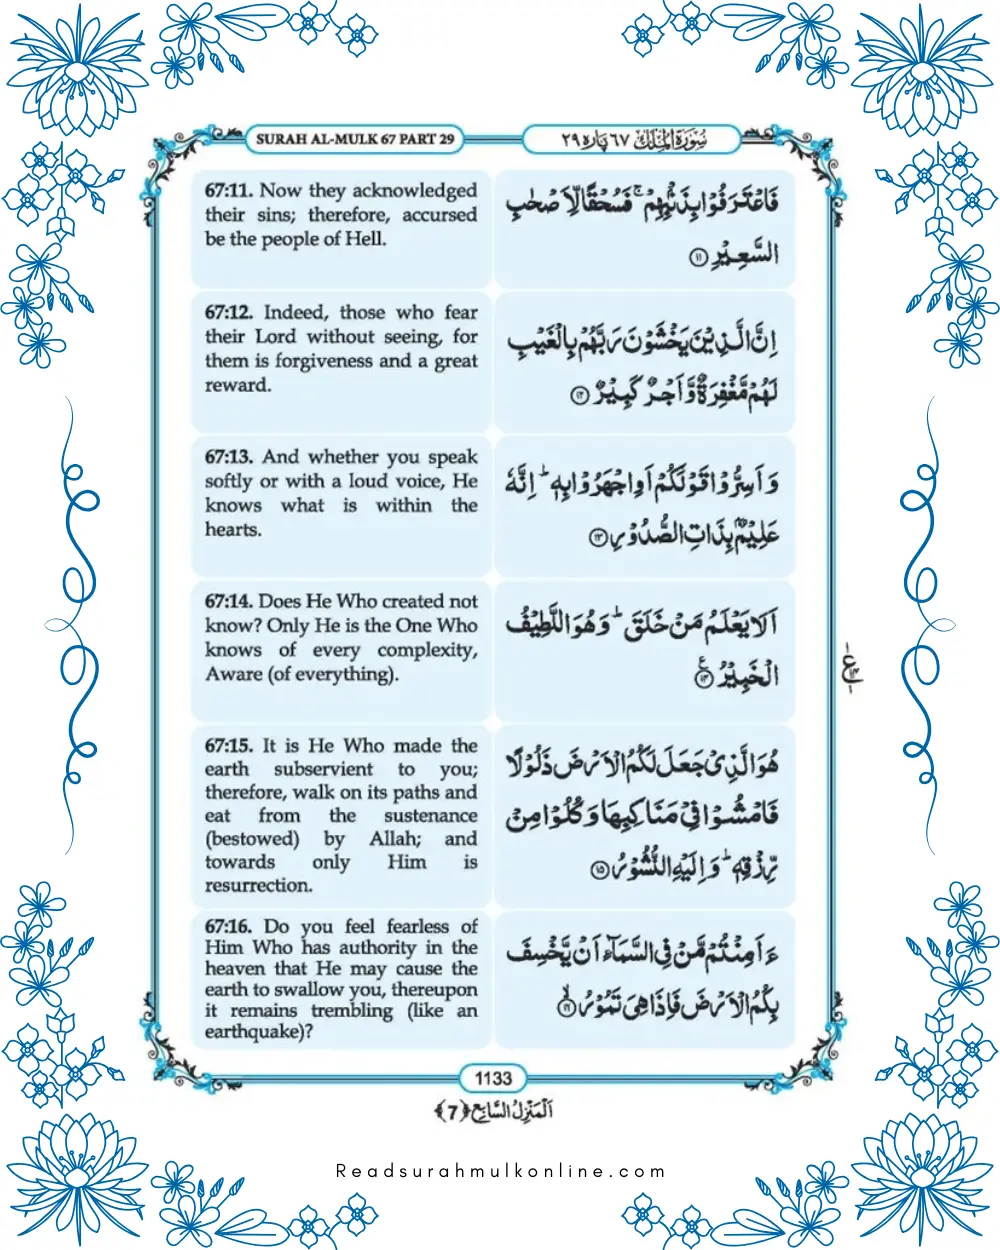 SURAH AL-MULK 67 PART 29
سُوْرَةُ الْمُلْكِ ٦٧ پاره ٢٩
67:11. Now they acknowledged
their sins; therefore, accursed
be the people of Hell.
فَاعْتَرَفُوْا بِذَنْۢبِهِمْ ۚ فَسُحْقًا لِّاَصْحٰبِ
السَّعِيْرِ ۝۱۱
67:12. Indeed, those who fear
their Lord without seeing, for
them is forgiveness and a great
reward.
اِنَّ الَّذِيْنَ يَخْشَوْنَ رَبَّهُمْ بِالْغَيْبِ
لَهُمْ مَّغْفِرَةٌ وَّاَجْرٌ كَبِيْرٌ ۝۱۲
67:13. And whether you speak
softly or with a loud voice, He
knows what is within the
hearts.
وَاَسِرُّوْا قَوْلَكُمْ اَوِ اجْهَرُوْا بِهٖ ؕ اِنَّهٗ
عَلِيْمٌۢ بِذَاتِ الصُّدُوْرِ ۝۱۳
67:14. Does He Who created not
know? Only He is the One Who
knows of every complexity,
Aware (of everything).
اَلَا يَعْلَمُ مَنْ خَلَقَ ؕ وَهُوَ اللَّطِيْفُ
الْخَبِيْرُ ۝۱۴ ع
67:15. It is He Who made the
earth subservient to you;
therefore, walk on its paths and
eat from the sustenance
(bestowed) by Allah; and
towards only Him is
resurrection.
هُوَ الَّذِيْ جَعَلَ لَكُمُ الْاَرْضَ ذَلُوْلًا
فَامْشُوْا فِيْ مَنَاكِبِهَا وَكُلُوْا مِنْ
رِّزْقِهٖ ؕ وَاِلَيْهِ النُّشُوْرُ ۝۱۵
67:16. Do you feel fearless of
Him Who has authority in the
heaven that He may cause the
earth to swallow you, thereupon
it remains trembling (like an
earthquake)?
ءَاَمِنْتُمْ مَّنْ فِي السَّمَآءِ اَنْ يَّخْسِفَ
بِكُمُ الْاَرْضَ فَاِذَا هِيَ تَمُوْرُ ۝۱۶ ۙ
1133
اَلْمَنْزِلُ السَّابِع ﴿7﴾
Readsurahmulkonline.com